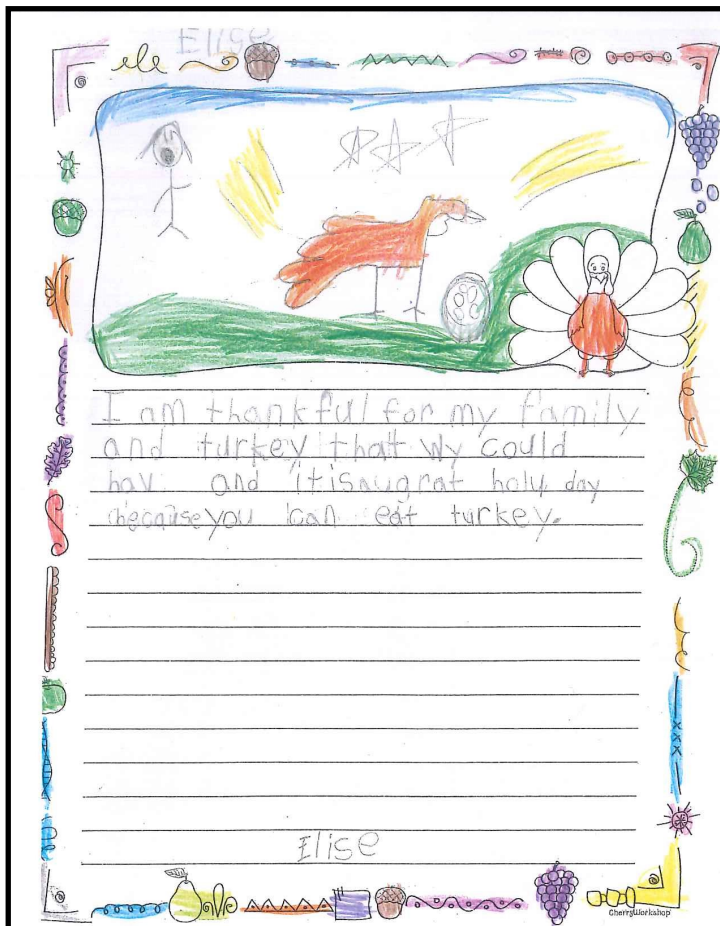 Elise
I am thankful for my family
and turkey that wy could
hav and itisaugrat holy day
because you can eat turkey.
Elise
CherryWorkshop